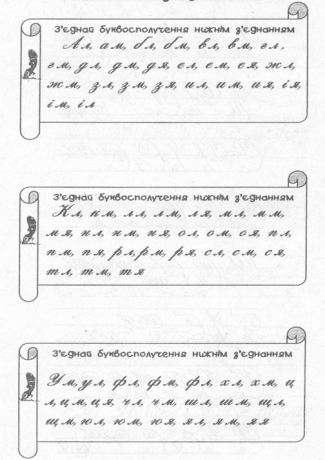 З'єднай буквосполучення нижнім з'єднанням
Ал, ам, бл, бм, вл, вм, гл,
гм, дл, дм, дя, ел, ем, ея, жл,
жм, зл, зм, зя, ил, им, ия, ія,
ім, іл
З'єднай буквосполучення нижнім з'єднанням
Кл, км, лл, лм, ля, мл, мм,
мя, нл, нм, ня, ол, ом, оя, пл,
пм, пя, рл, рм, ря, сл, см, ся,
тл, тм, тя
З'єднай буквосполучення нижнім з'єднанням
Ум, ул, фл, фм, фл, хл, хм, ц
л, цм, ця, чл, чм, шл, шм, щл,
щм, юл, юм, юя, ял, ям, яя